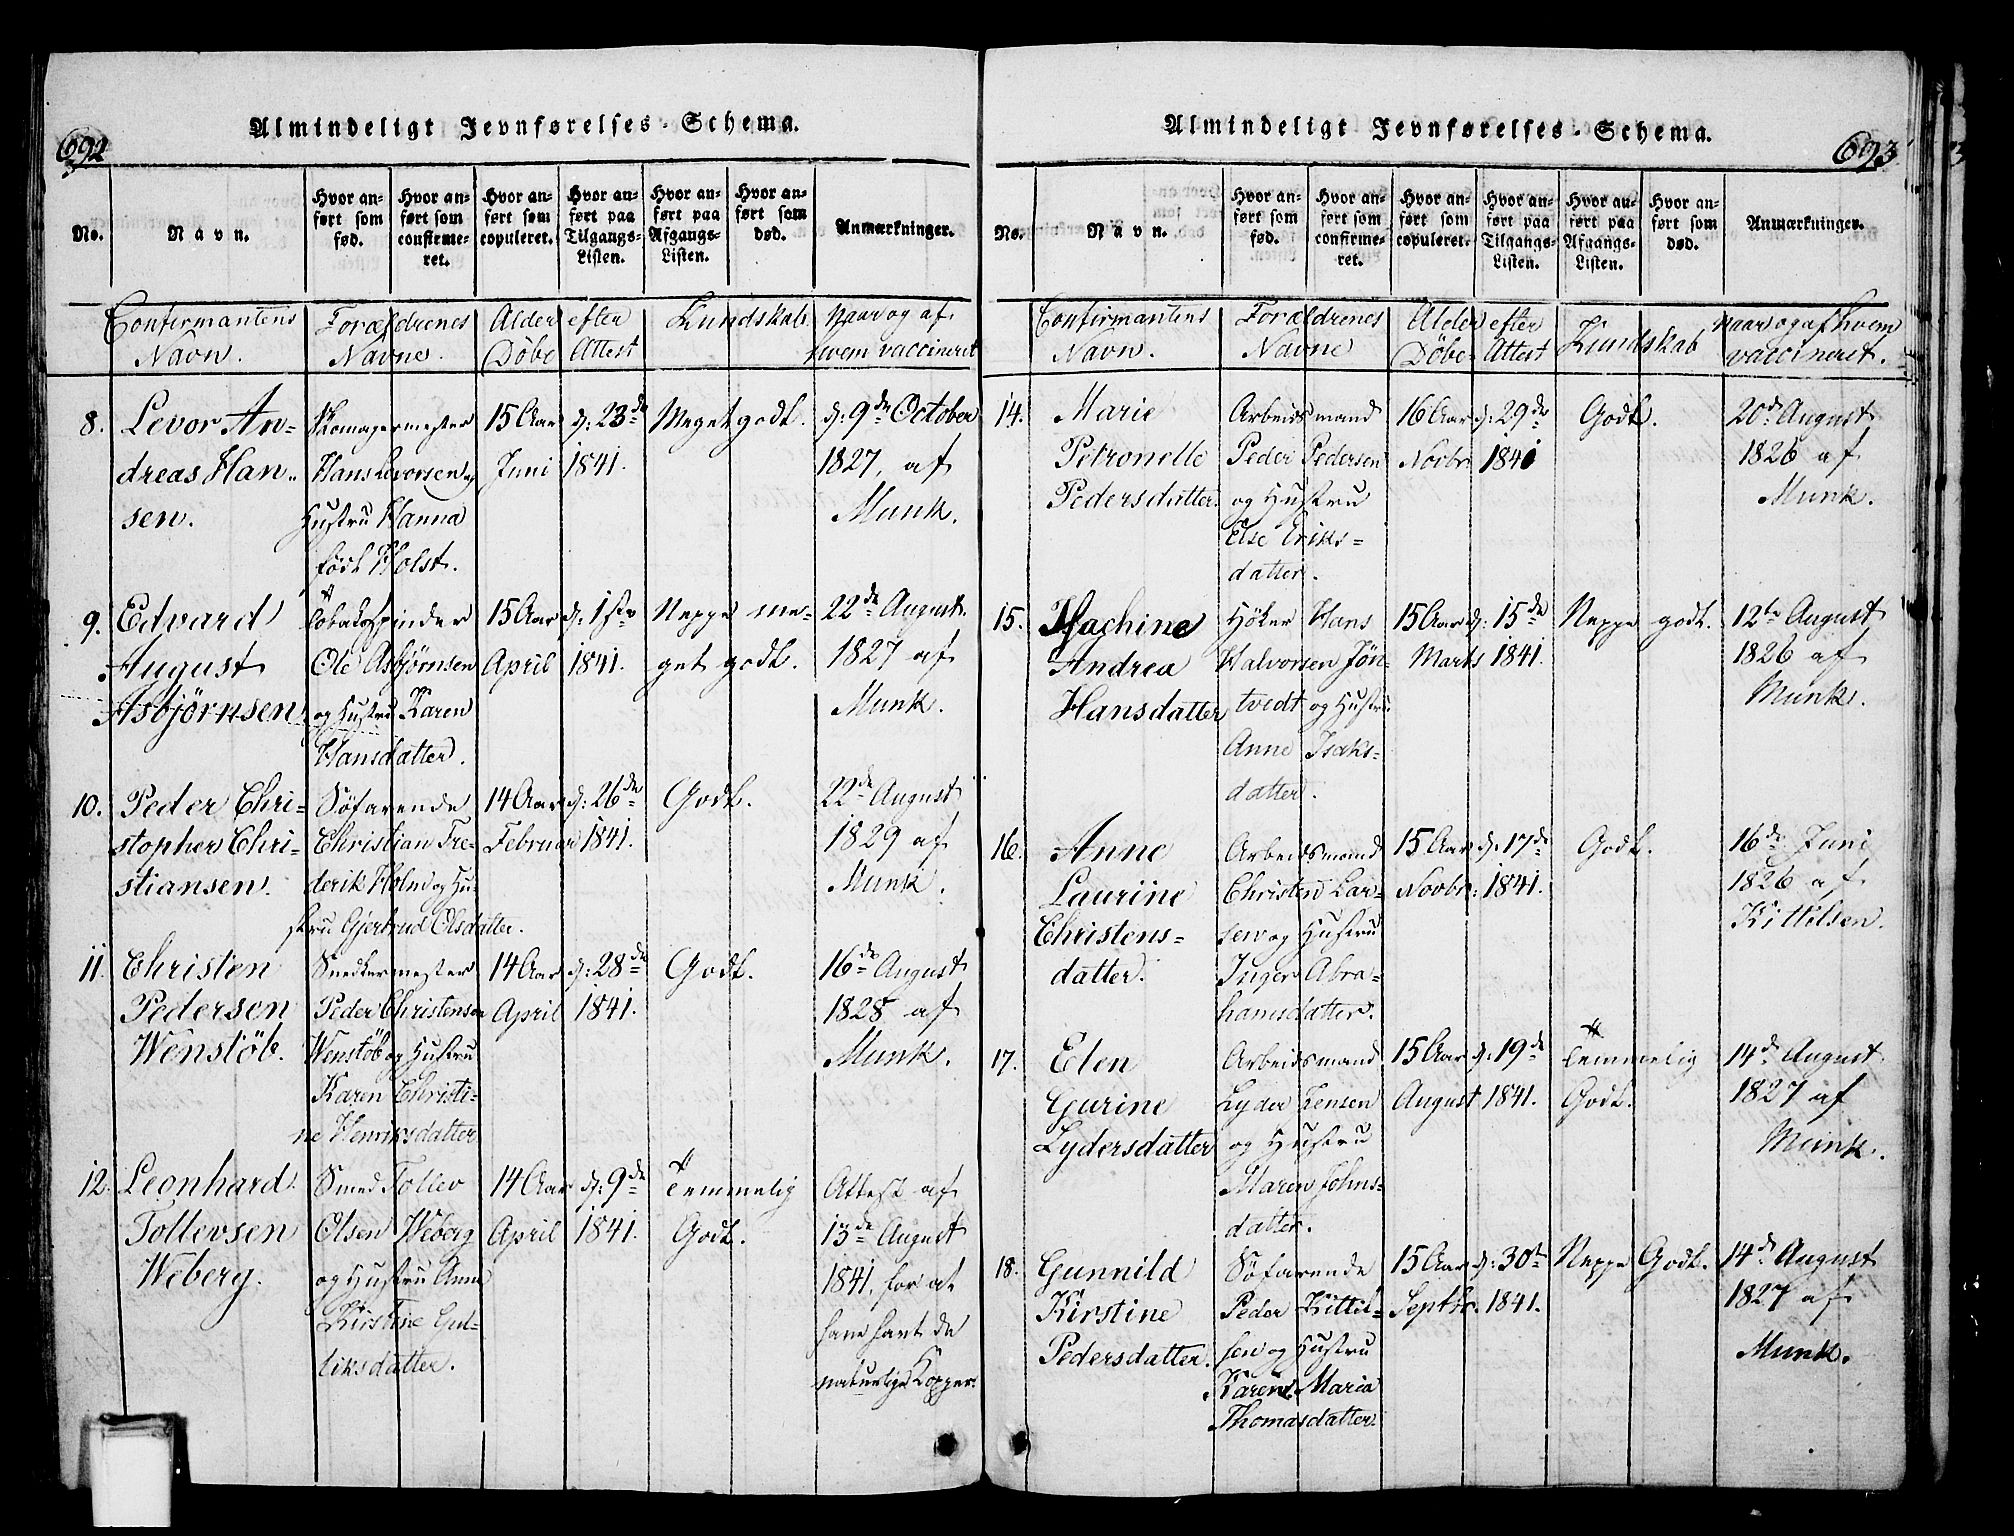 692
Almindeligt Jevnførelses-Schema.
No.
Navn.
Hvor anført som fød.
Hvor anført som confirmeret.
Hvor anført som copuleret.
Hvor anført paa Tilgangs-Listen.
Hvor anført paa Afgangs-Listen.
Hvor anført som død.
Anmærkninger.
Confirmantens Navn.
Forældrenes Navne.
Alder efter Döbe Attest
Kundskab.
Naar og af hvem vaccineret
8.
Levor An=
dreas Han=
sen.
Skomagermester
Hans Levorsen og
Hustru Hanna
föd Holst.
15 Aar d: 23de
Juni 1841.
Meget godt.
d: 9de October
1827, af
Munk.
9.
Edvard
August
Asbjörnsen
Tobakspinder
Ole Asbjörnsen
og Hustru Karen
Hansdatter.
15 Aar d: 1ste
April 1841.
Neppe me=
get godt.
22de August
1827 af
Munk.
10.
Peder Chri=
stopher Chri=
stiansen.
Söfarende
Christian Fre=
derik Holm og Hu=
stru Gjertrud Olsdatter.
14 Aar d: 26de
Februar 1841.
Godt.
22de August
1829 af
Munk.
11.
Christen
Pedersen
Wenstöb.
Snedkermester
Peder Christensen
Wenstöb og Hustru
Karen Christi=
ne Henriksdatter
14 Aar d: 28de
April 1841.
Godt.
16de August
1828 af
Munk.
12.
Leonhard
Tollevsen
Weberg.
Smed Tollev
Olsen Weberg
og Hustru Anne
Kirstine Gul=
liksdatter.
14 Aar d: 9de
April 1841.
Temmelig
Godt.
Attest af
13de August
1841, for at
have havt de
naturlige Kopper.
693
Almindeligt Jevnførelses-Schema.
No.
Navn.
Hvor anført som fød.
Hvor anført som confirmeret.
Hvor anført som copuleret.
Hvor anført paa Tilgangs-Listen.
Hvor anført paa Afgangs-Listen.
Hvor anført som død.
Anmærkninger.
Confirmantens Navn.
Forældrenes Navne
Alder efter Döbe Attest
Kundskab
Naar og af hvem vaccineret.
14.
Marie
Petronelle
Pedersdatter.
Arbeidsmand
Peder Pedersen
og Hustru
Else Eriks=
datter.
16 Aar d: 29de
Novbr. 1840
Godt.
20de August
1826 af
Munk.
15.
Hachine
Andrea
Hansdatter
Höker Hans
Halvorsen Jön=
tvedt og Hustru
Anne Isaks=
datter.
15 Aar d: 15de
Marts 1841.
Neppe godt.
12te August
1826 af
Munk.
16.
Anne
Laurine
Christens=
datter.
Arbeidsmand
Christen Lar=
sen og Hustru
Inger Abra=
hamsdatter.
15 Aar d: 17de
Novbr: 1841.
Godt.
16de Juni
1826 af
Kittelsen.
17.
Elen
Gurine
Lydersdatter
Arbeidsmand
Lyder Jensen
og Hustru
Maren Johns=
datter.
15 Aar d: 19de
August 1841.
Temmelig
Godt.
14de August
1827 af
Munk.
18.
Gunnild
Kirstine
Pedersdatter.
Söfarende
Peder Kittel=
sen og Hustru
Karen Maria
Thomasdatter.
15 Aar d: 30te
Septbr. 1841.
Neppe Godt.
14de August
1827 af
Munk.